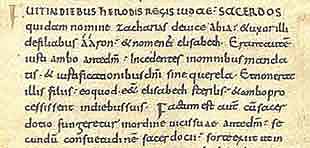 FUIT IN DIEBUS HERODIS REGIS IUDAEAE · SACERDOS
quidam nomine zacharias de uice abia · & uxor illi
de filiabus aaron · & nomen ei elisabeth · Erant autem
iusti ambo ante dm̄ · Incedentes in omnibus manda
tis · & iustificationibus dn̄i sine querela · Et non erat
illis filius · eo quod ess& elisabeth sterilis · & ambo pro
cessissent in diebus suis · Factum est autē cū sacer
dotio fungeretur in ordine uicis suae ante dm̄ · se
cundū consuetudinē sacerdotii · sorte exiit ut in